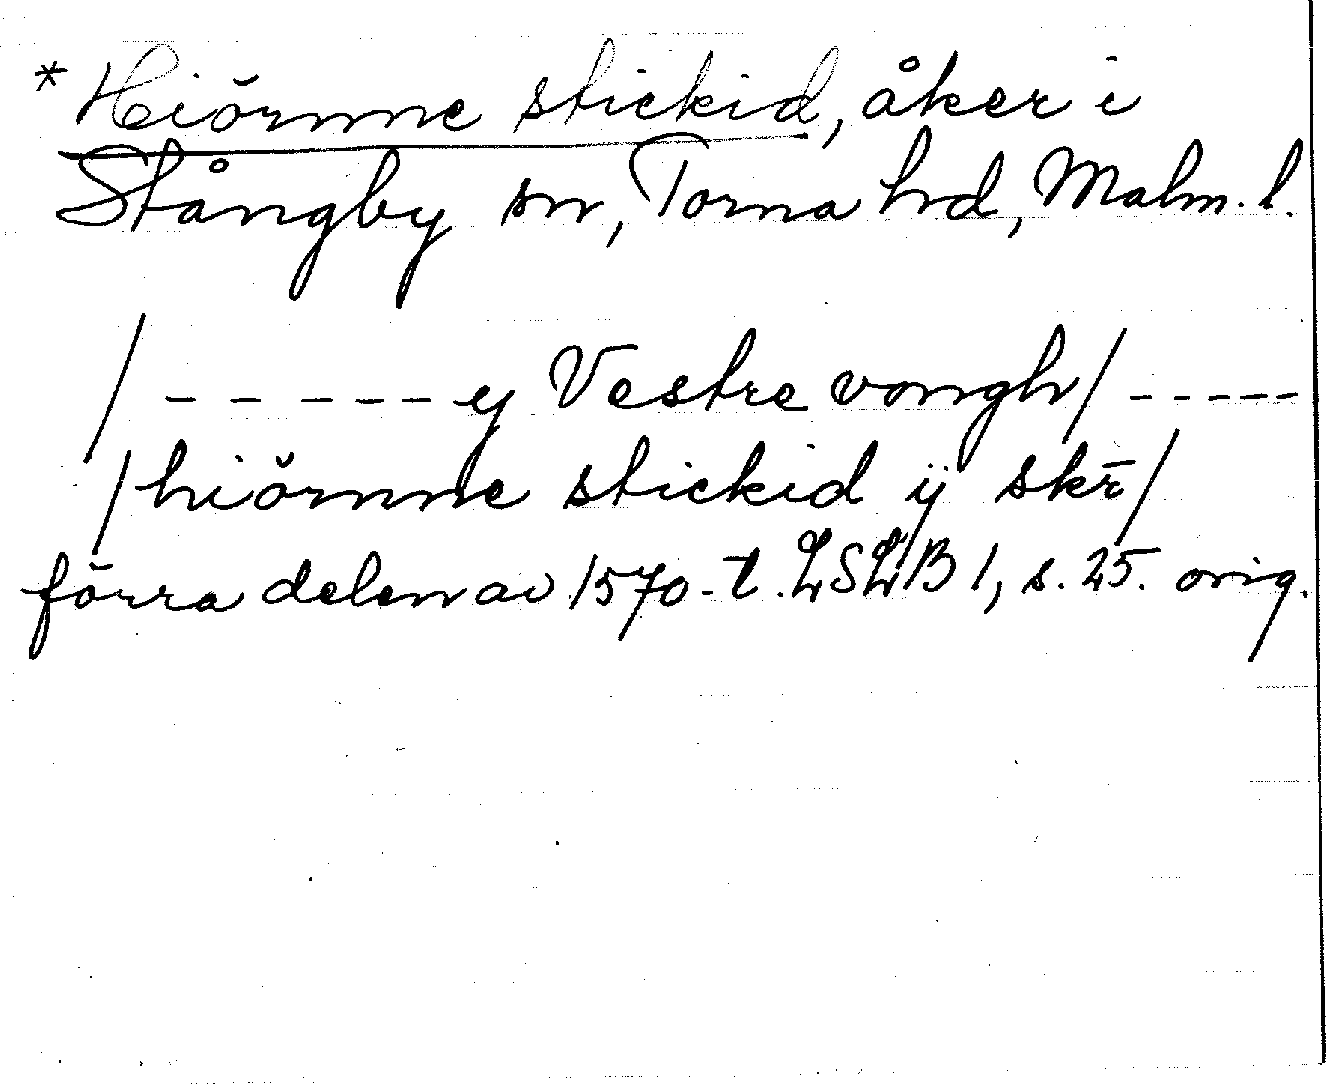 * Hiörnne stickid, åker i
Stångby sn, Torna hrd, Malm. l.
/ - - - - - y Vestre vongh / - - - - -
/ hiörnne stickid ij skr̄ /
förra delen av 1570-t. LSLB 1, s. 25. orig.